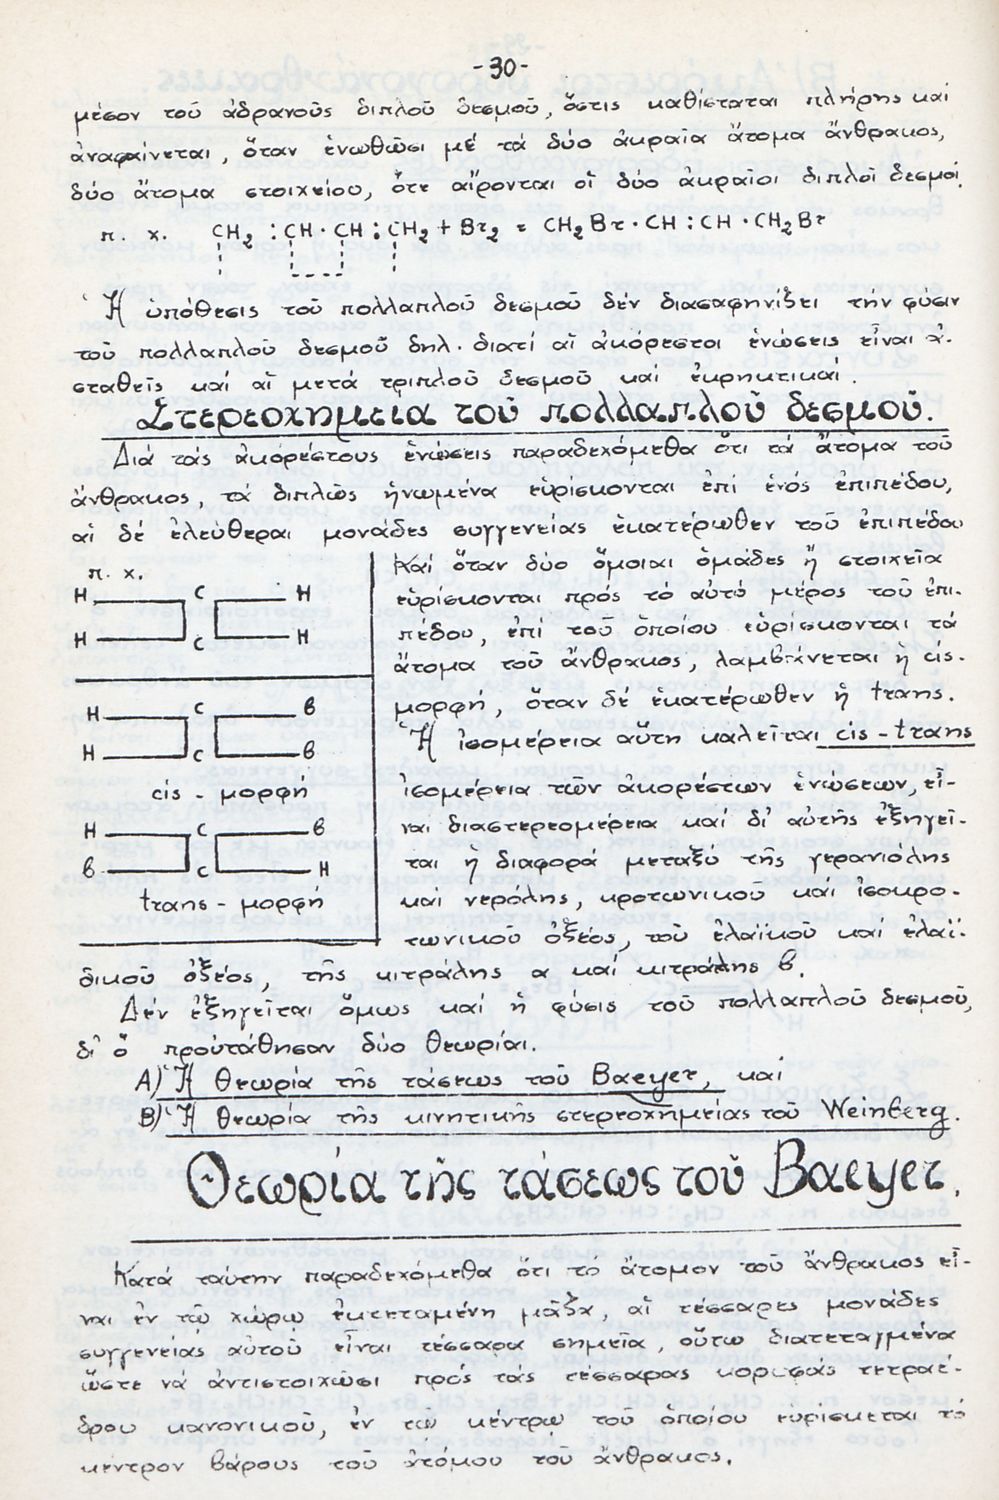 -30-
μέσον τοῦ ἀδρανοῦς διπλοῦ δεσμοῦ, ὅστις καθίσταται πλήρης καί
ἀναφαίνεται, ὅταν ἑνωθῶσι μέ τά δύο ἀκραῖα ἄτομα ἄνθρακος,
δύο ἄτομα στοιχείου, ὅτε αἴρονται οἱ δύο ἀκραῖοι διπλοῖ δεσμοί.
π. χ. CH₂ : CH · CH : CH₂ + Br₂ = CH₂Br · CH : CH · CH₂Br
Ἡ ὑπόθεσις τοῦ πολλαπλοῦ δεσμοῦ δέν διασαφηνίζει τήν φύσιν
τοῦ πολλαπλοῦ δεσμοῦ δηλ. διατί αἱ ἀκόρεστοι ἑνώσεις εἶναι ἀ-
σταθεῖς καί αἱ μετά τριπλοῦ δεσμοῦ καί ἐκρηκτικαί.
Στερεοχημεία τοῦ πολλαπλοῦ δεσμοῦ.
Διά τάς ἀκορέστους ἑνώσεις παραδεχόμεθα ὅτι τά ἄτομα τοῦ
ἄνθρακος, τά διπλῶς ἡνωμένα εὑρίσκονται ἐπί ἑνός ἐπιπέδου,
αἱ δέ ἐλεύθεραι μονάδες συγγενείας ἑκατέρωθεν τοῦ ἐπιπέδου
π. χ.
H C H
H C H
H C β
H C β
cis - μορφή
H C β
β C H
trans - μορφή
Καί ὅταν δύο ὅμοιαι ὁμάδες ἤ στοιχεῖα
εὑρίσκονται πρός τό αὐτό μέρος τοῦ ἐπι-
πέδου, ἐπί τοῦ ὁποίου εὑρίσκονται τά
ἄτομα τοῦ ἄνθρακος, λαμβάνεται ἡ cis-
μορφή, ὅταν δέ ἑκατέρωθεν ἡ trans.
Ἡ ἰσομέρεια αὕτη καλεῖται cis - trans
ἰσομέρεια τῶν ἀκορέστων ἑνώσεων, εἶ-
ναι διαστερεομέρεια καί δι' αὐτῆς ἐξηγεῖ-
ται ἡ διαφορά μεταξύ τῆς γερανιόλης
καί νερόλης, κροτωνικοῦ καί ἰσοκρο-
τωνικοῦ ὀξέος, τοῦ ἐλαϊκοῦ καί ἐλαϊ-
δικοῦ ὀξέος, τῆς κιτράλης α καί κιτράλης β.
Δέν ἐξηγεῖται ὅμως καί ἡ φύσις τοῦ πολλαπλοῦ δεσμοῦ,
δι' ὅ προὐτάθησαν δύο θεωρίαι.
Α) Ἡ θεωρία τῆς τάσεως τοῦ Baeyer, καί
Β) Ἡ θεωρία τῆς κινητικῆς στερεοχημείας τοῦ Weinberg.
Θεωρία τῆς τάσεως τοῦ Baeyer.
Κατά ταύτην παραδεχόμεθα ὅτι τό ἄτομον τοῦ ἄνθρακος εἶ-
ναι ἐν τῷ χώρῳ ἐκτεταμένη μᾶζα, αἱ τέσσαρες μονάδες
συγγενείας αὐτοῦ εἶναι τέσσαρα σημεῖα, οὕτω διατεταγμένα
ὥστε νά ἀντιστοιχῶσι πρός τάς τέσσαρας κορυφάς τετραέ-
δρου κανονικοῦ, ἐν τῷ κέντρῳ τοῦ ὁποίου εὑρίσκεται τό
κέντρον βάρους τοῦ ἀτόμου τοῦ ἄνθρακος.